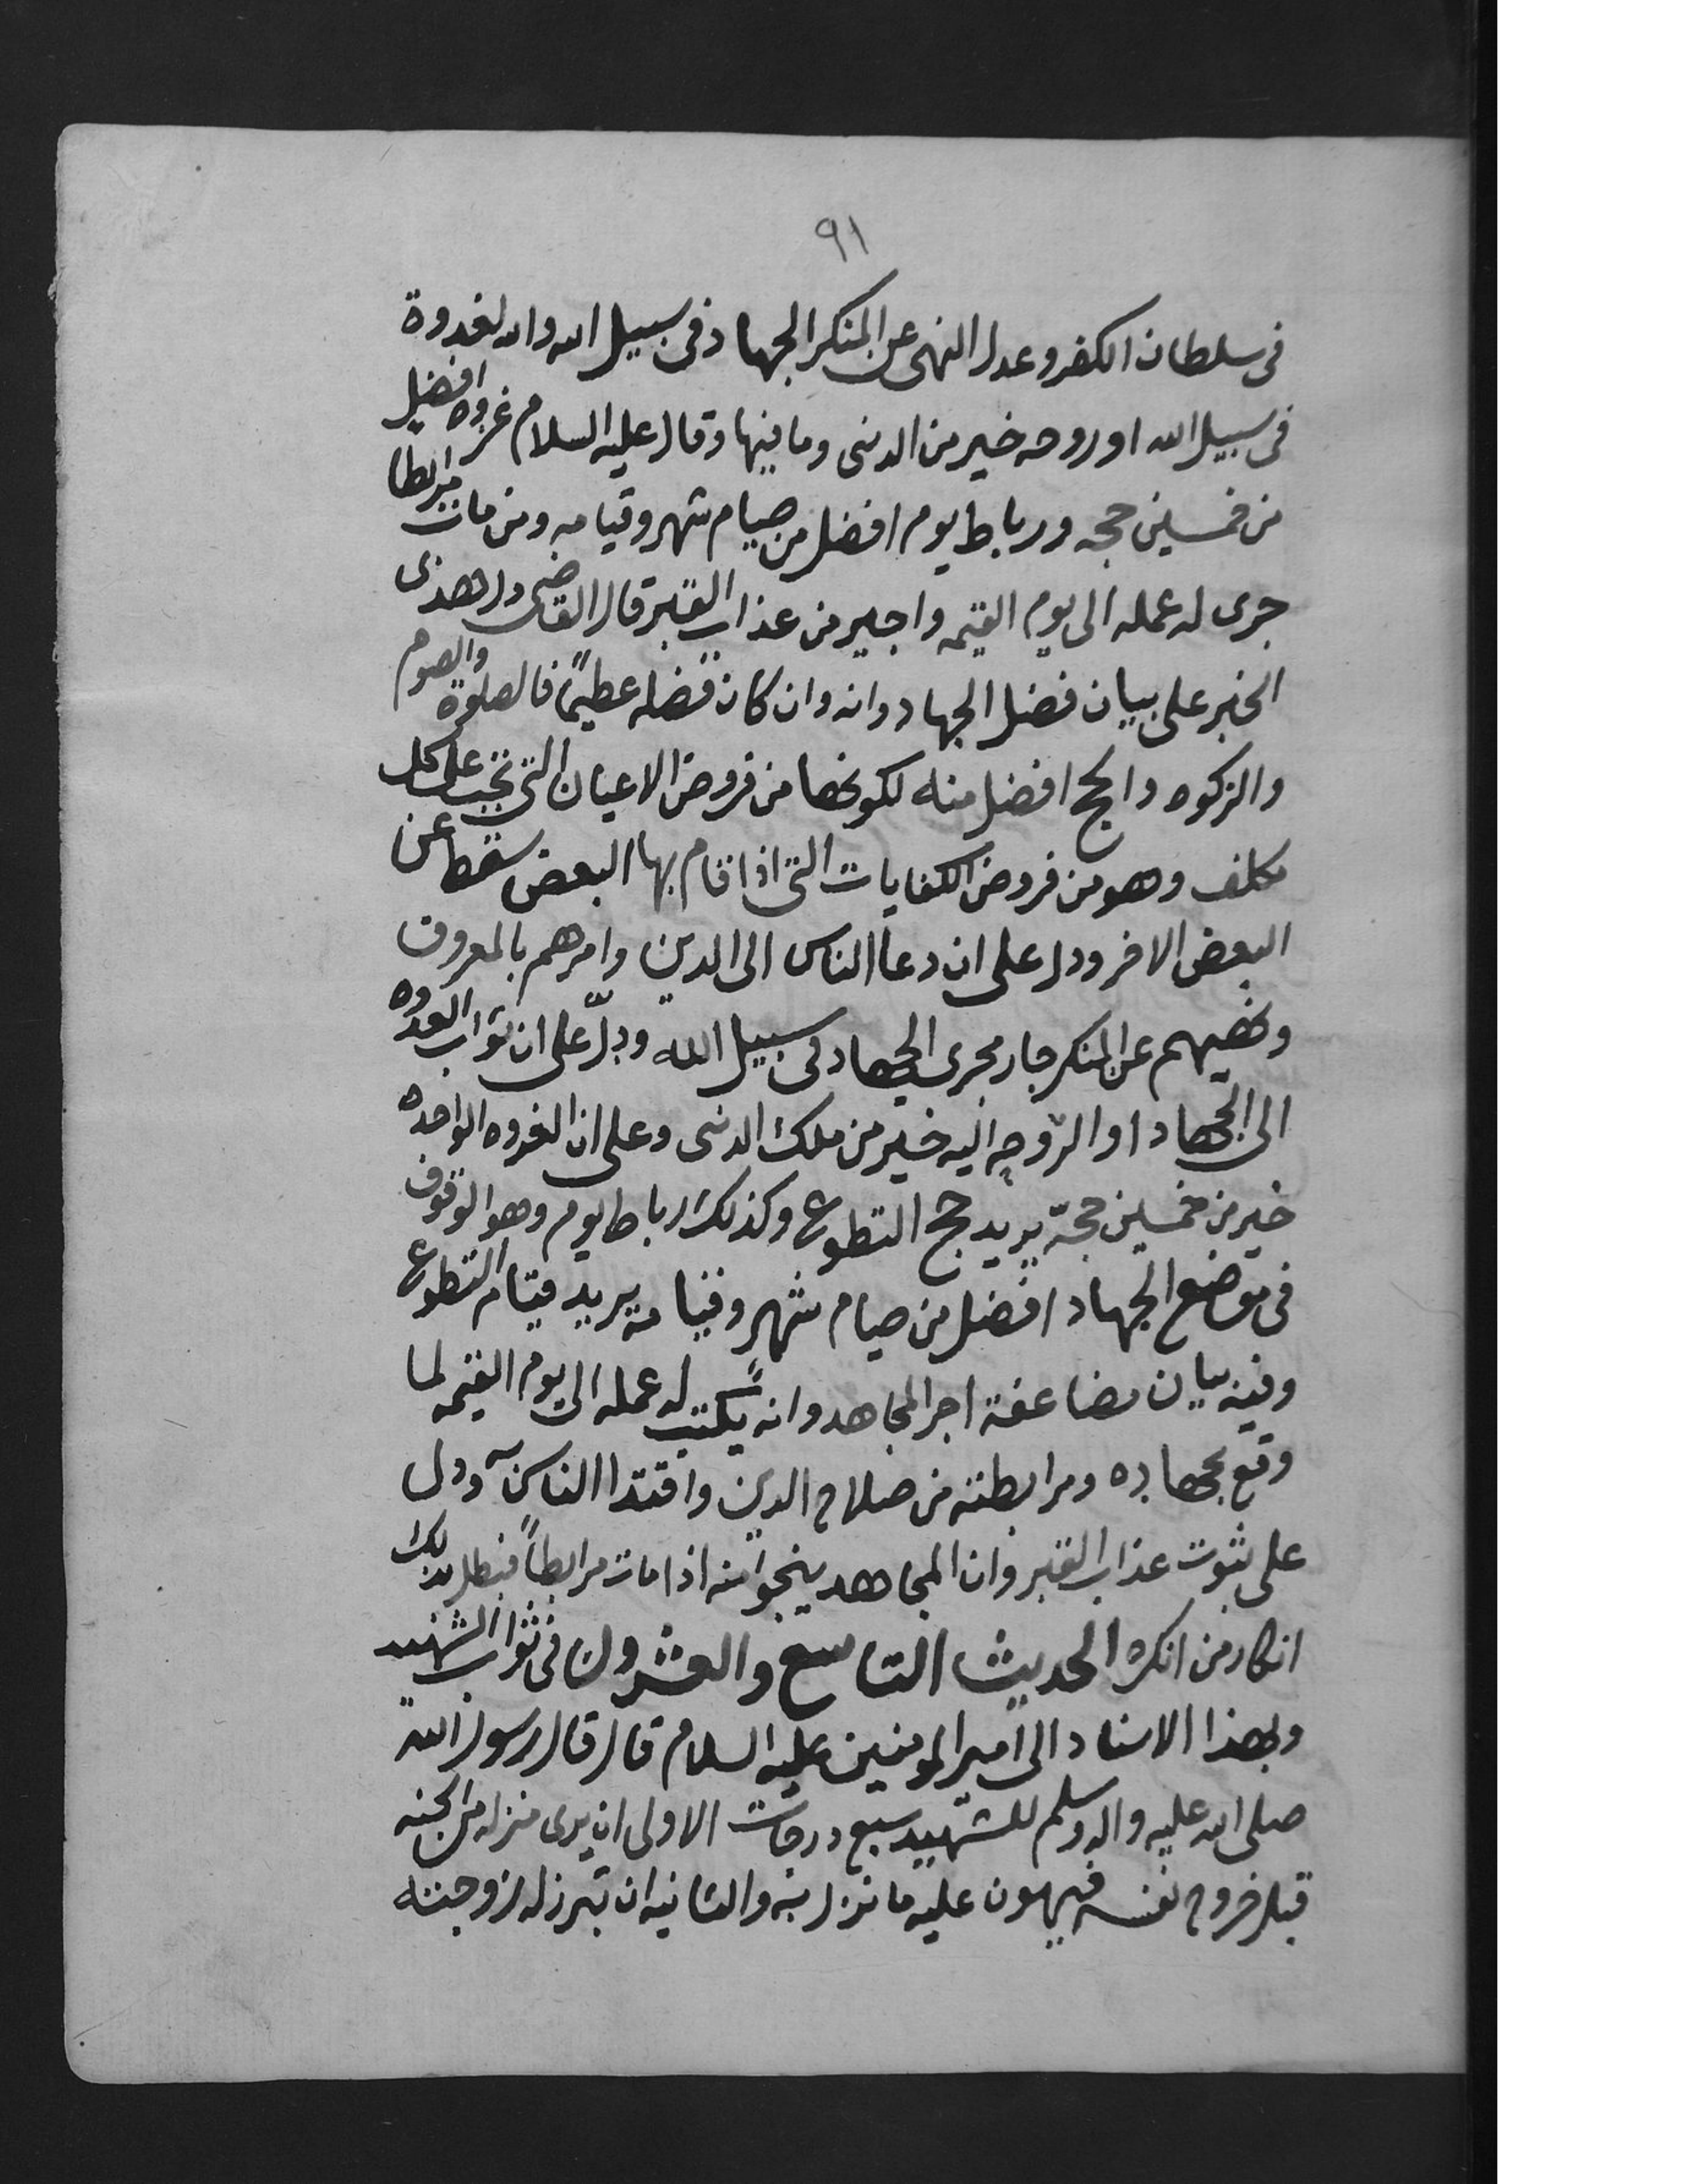 ٩١
فى سلطان الكفر وعدل النهى عن المنكر الجهاد فى سبيل الله والله لغدوة
فى سبيل الله او روحه خير من الدنى وما فيها وقال عليه السلام غزوه افضل
من خمسين حجه ورباط يوم افضل من صيام شهر وقيامه ومن مات مرابطا
جرى له عمله الى يوم القيمه واجير من عذاب القبر قال القاضى ولهذى
الخبر على بيان فضل الجهاد وانه وان كان فضله عظيماً فالصلوة والصوم
والزكوه والحج افضل منه لكونها من فروض الاعيان التى تجب على كل
مكلف وهو من فروض الكفايات التى اذا قام بها البعض سقط عن
البعض الاخر ودل على ان دعا الناس الى الدين وامرهم بالمعروف
ونهيهم عن المنكر جار مجرى الجهاد فى سبيل الله ودلّ على ان ثواب الغدوه
الى الجهاد او الروحه اليه خير من ملك الدنى وعلى ان الغزوه الواحده
خير من خمسين حجّه يريد حج التطوع وكذلك رباط يوم وهو الوقوف
فى موضع الجهاد افضل من صيام شهر وقيامه يريد قيام التطوع
وفيه بيان مضاعفة اجر المجاهد وانه يكتب له عمله الى يوم القيمه لما
وقع بجهاده ومرابطته من صلاح الدين واقتدا الناس به ودل
على ثبوت عذاب القبر وان المجاهد ينجوا منه اذا مات مرابطاً فبطل بذلك
انكار من انكره الحديث التاسع والعشرون فى ثواب الشهيد
وبهذا الاسناد الى امير المومنين عليه السلام قال قال رسول الله
صلى الله عليه واله وسلم للشهيد سبع درجات الاولى ان يرى منزله من الجنه
قبل خروج نفسه فيهون عليه ما نزل به والثانيه ان تبرز له زوجته